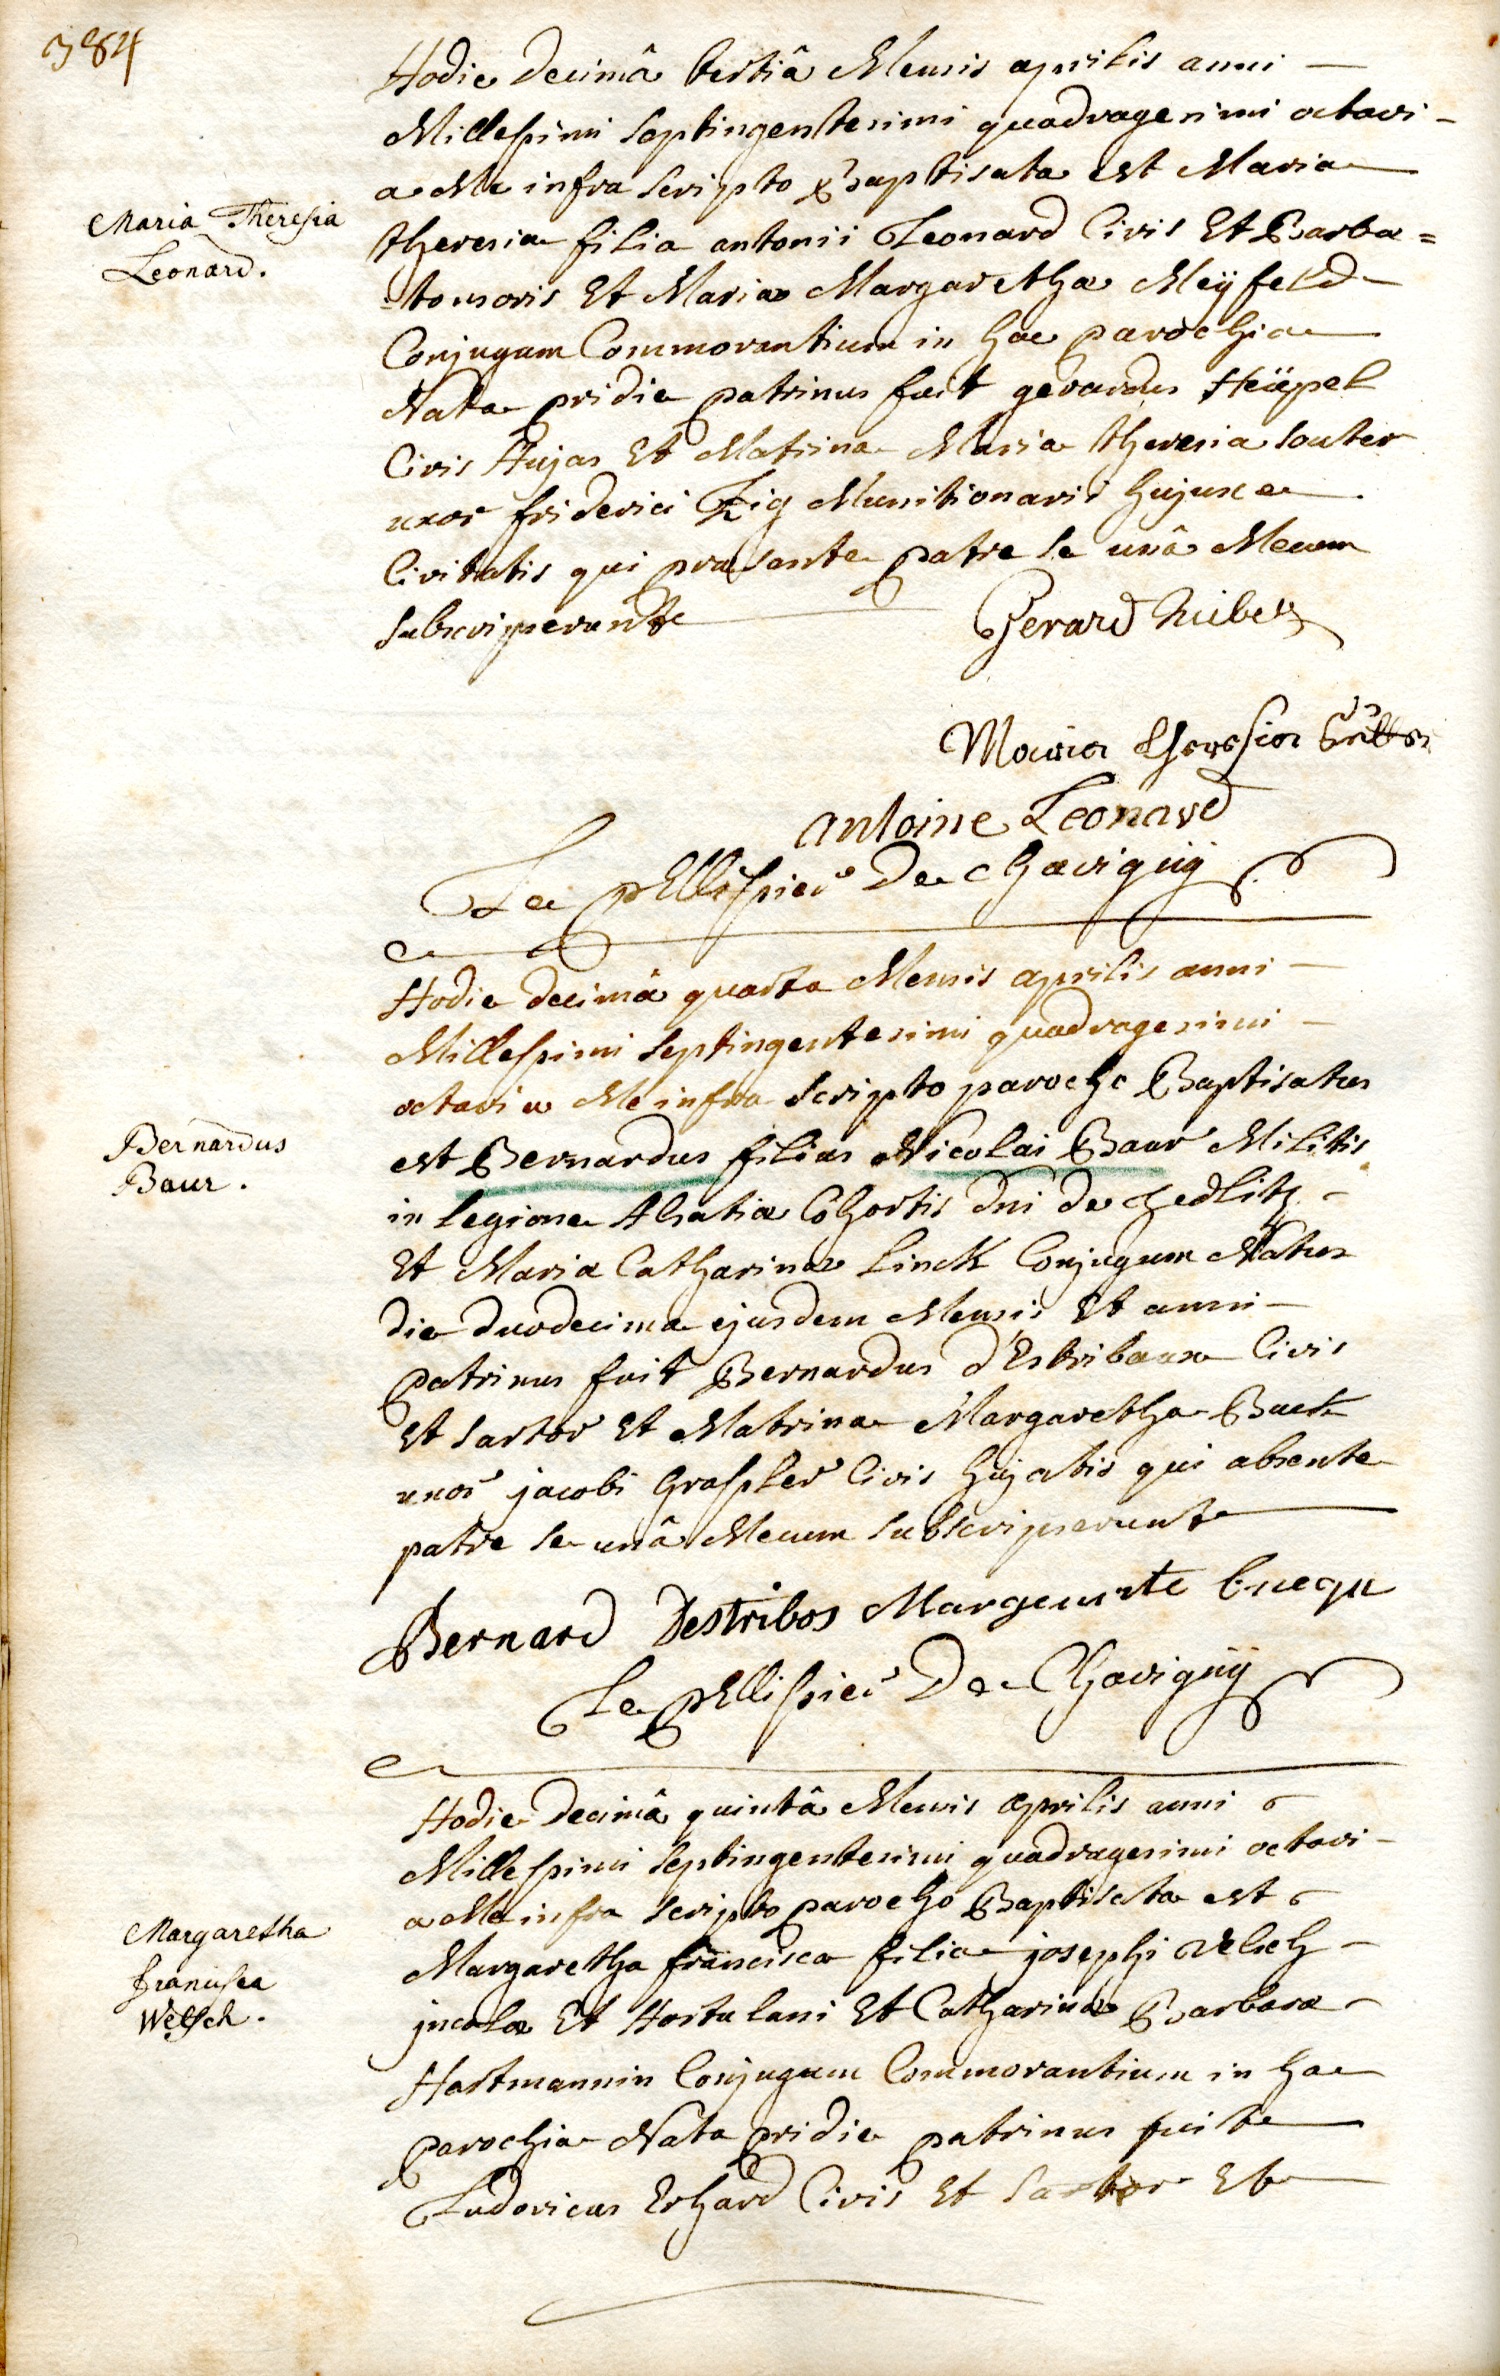 384
Hodie decimâ tertiâ Mensis aprilis anni
Millesimi septingentesimi quadragesimi octavi
a Me infra scripto Baptisata est Maria
Maria Theresia
Leonard.
theresia filia antonii Leonard Civis Et Barba=
tonsoris Et Mariae Margarethae Meÿfeld
Conjugum Commorantium in hac parochia
Nata pridie patrinus fuit gerardus
Civis Hujas Et Matrina Maria theresia souter
uxor friderici Munitionarii hujusce
Civitatis qui praesente patre se unâ Mecum
subscripserunt
Gerard
Maria
antoine Leonard
Le pElissier De chavignÿ
Hodie decimâ quarta Mensis aprilis anni
Millesimi septingentesimi quadragesimi
octavi a Me infra scripto parocho Baptisatus
Bernardus
Baur.
est Bernardus filius Nicolai Baur Militis
in legione Alsatiae Cohortis dni de zedlitz
Et Maria Catharinae Linck Conjugum Natus
die duodecima ejusdem Mensis Et anni
patrinus fuit Bernardus d'Estribaux Civis
Et sartor Et Matrina Margaretha Buck
uxor jacobi Grassler Civis hujatis qui absente
patre se unâ Mecum subscripserunt
Bernard Destribos
Le pElissier De Chavignÿ
Hodie decimâ quintâ Mensis aprilis anni
Millesimi septingentesimi quadragesimi octavi
a Me infra scripto parocho Baptisata est
Margaretha
francisca
Welsch.
Margaretha francisca filia josephi Velsch
incolae Et Hortulani Et Catharinae Barbara
Hartmannin Conjugum Commorantium in hac
parochia Nata pridie patrinus fuit
Ludovicus Erhard Civis Et Sartor Et